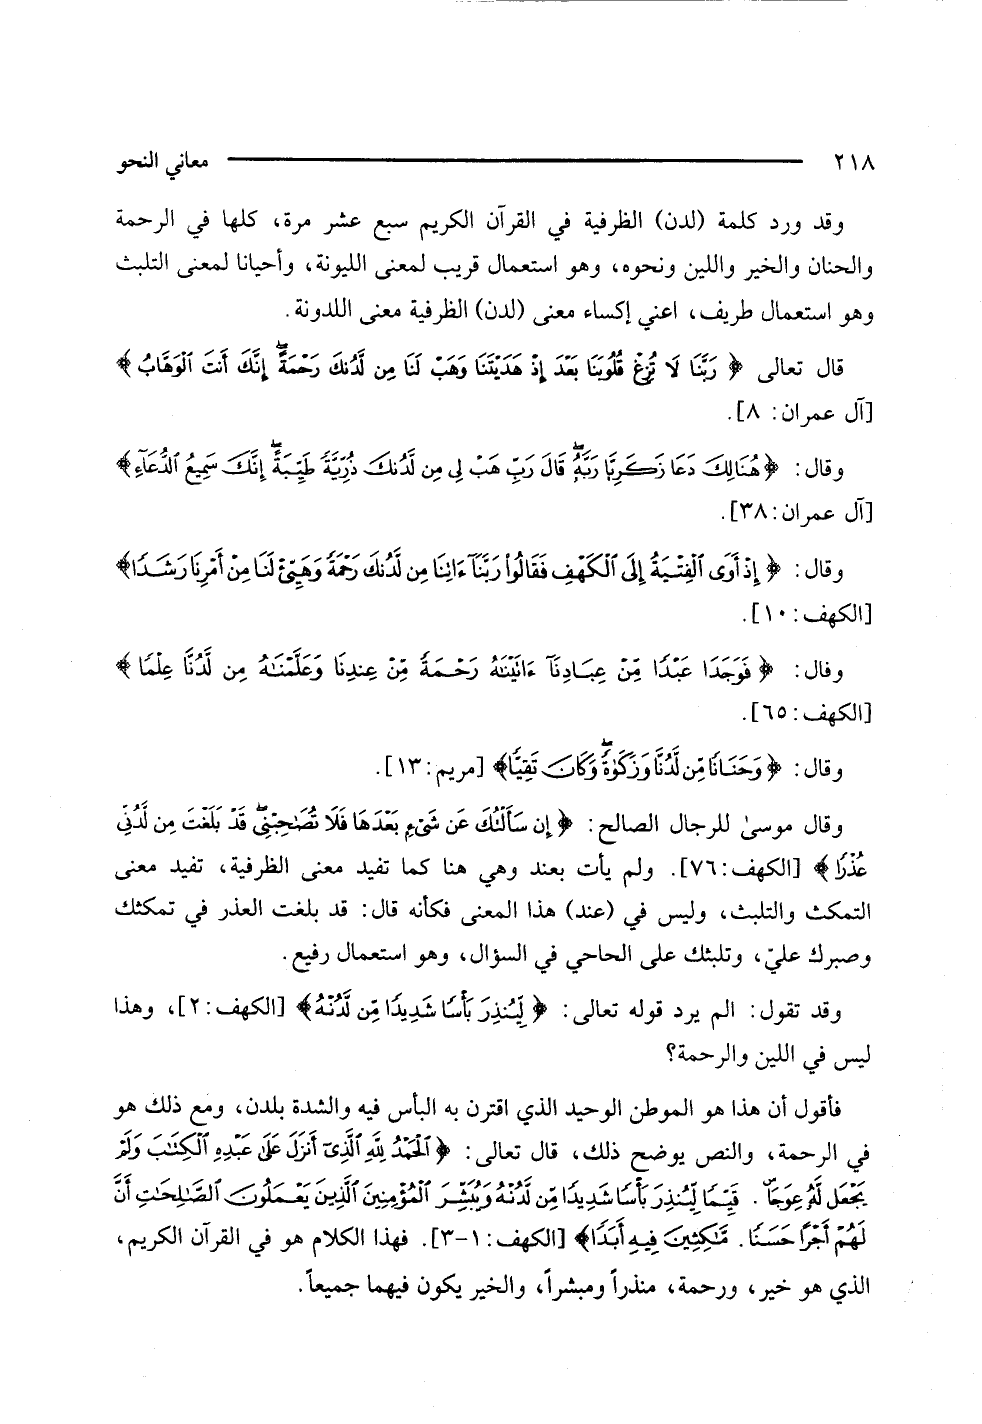 ٢١٨ معاني النحو
وقد ورد كلمة (لدن) الظرفية في القرآن الكريم سبع عشر مرة، كلها في الرحمة
والحنان والخير واللين ونحوه، وهو استعمال قريب لمعنى الليونة، وأحيانا لمعنى التلبث
وهو استعمال طريف، اعني إكساء معنى (لدن) الظرفية معنى اللدونة.
قال تعالى ﴿ رَبَّنَا لَا تُزِغْ قُلُوبَنَا بَعْدَ إِذْ هَدَيْتَنَا وَهَبْ لَنَا مِن لَّدُنكَ رَحْمَةً ۚ إِنَّكَ أَنتَ ٱلْوَهَّابُ ﴾
[آل عمران: ٨].
وقال: ﴿ هُنَالِكَ دَعَا زَكَرِيَّا رَبَّهُۥ ۖ قَالَ رَبِّ هَبْ لِى مِن لَّدُنكَ ذُرِّيَّةً طَيِّبَةً ۖ إِنَّكَ سَمِيعُ ٱلدُّعَآءِ ﴾
[آل عمران: ٣٨].
وقال: ﴿ إِذْ أَوَى ٱلْفِتْيَةُ إِلَى ٱلْكَهْفِ فَقَالُوا۟ رَبَّنَآ ءَاتِنَا مِن لَّدُنكَ رَحْمَةً وَهَيِّئْ لَنَا مِنْ أَمْرِنَا رَشَدًا ﴾
[الكهف: ١٠].
وفال: ﴿ فَوَجَدَا عَبْدًا مِّنْ عِبَادِنَآ ءَاتَيْنَٰهُ رَحْمَةً مِّنْ عِندِنَا وَعَلَّمْنَٰهُ مِن لَّدُنَّا عِلْمًا ﴾
[الكهف: ٦٥].
وقال: ﴿ وَحَنَانًا مِّن لَّدُنَّا وَزَكَوٰةً ۖ وَكَانَ تَقِيًّا ﴾ [مريم: ١٣].
وقال موسىٰ للرجال الصالح: ﴿ إِن سَأَلْتُكَ عَن شَىْءٍۭ بَعْدَهَا فَلَا تُصَٰحِبْنِى ۖ قَدْ بَلَغْتَ مِن لَّدُنِّى
عُذْرًا ﴾ [الكهف: ٧٦]. ولم يأت بعند وهي هنا كما تفيد معنى الظرفية، تفيد معنى
التمكث والتلبث، وليس في (عند) هذا المعنى فكأنه قال: قد بلغت العذر في تمكثك
وصبرك عليّ، وتلبثك على الحاحي في السؤال، وهو استعمال رفيع.
وقد تقول: الم يرد قوله تعالى: ﴿ لِّيُنذِرَ بَأْسًا شَدِيدًا مِّن لَّدُنْهُ ﴾ [الكهف: ٢]، وهذا
ليس في اللين والرحمة؟
فأقول أن هذا هو الموطن الوحيد الذي اقترن به البأس فيه والشدة بلدن، ومع ذلك هو
في الرحمة، والنص يوضح ذلك، قال تعالى: ﴿ ٱلْحَمْدُ لِلَّهِ ٱلَّذِىٓ أَنزَلَ عَلَىٰ عَبْدِهِ ٱلْكِتَٰبَ وَلَمْ
يَجْعَل لَّهُۥ عِوَجَاۜ. قَيِّمًا لِّيُنذِرَ بَأْسًا شَدِيدًا مِّن لَّدُنْهُ وَيُبَشِّرَ ٱلْمُؤْمِنِينَ ٱلَّذِينَ يَعْمَلُونَ ٱلصَّٰلِحَٰتِ أَنَّ
لَهُمْ أَجْرًا حَسَنًا. مَّٰكِثِينَ فِيهِ أَبَدًا ﴾ [الكهف: ١-٣]. فهذا الكلام هو في القرآن الكريم،
الذي هو خير، ورحمة، منذراً ومبشراً، والخير يكون فيهما جميعاً.